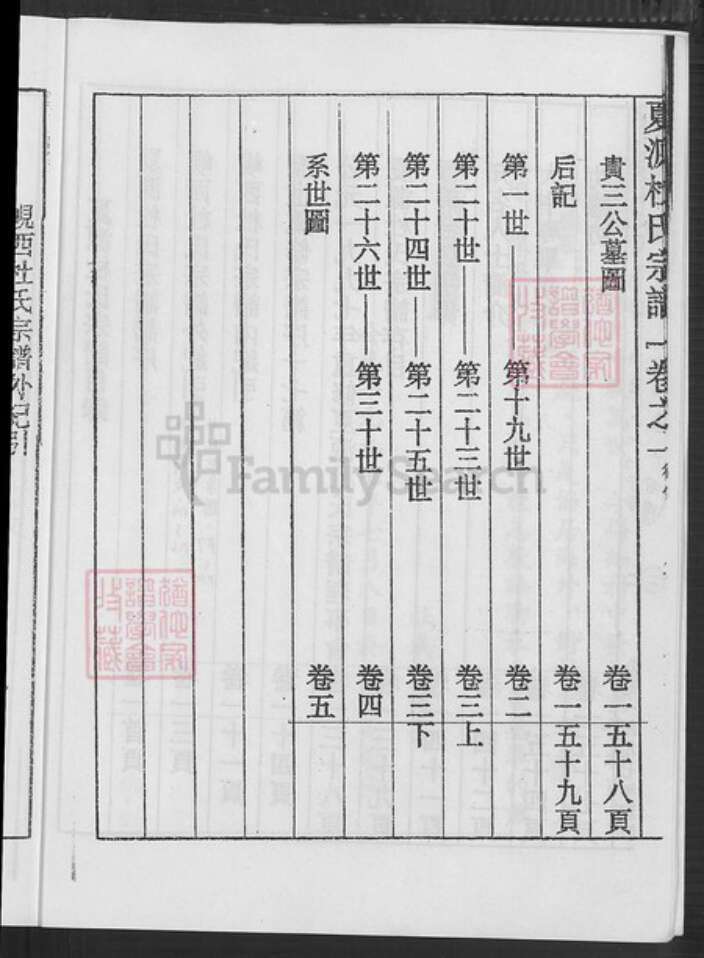 夏源杜氏宗譜 一卷之一
貴三公墓圖 卷一五十八頁
后記 卷一五十九頁
第一世——第十九世 卷二
第二十世——第二十三世 卷三上
第二十四世——第二十五世 卷三下
第二十六世——第三十世 卷四
系世圖 卷五
西杜氏宗譜外紀引
FamilySearch